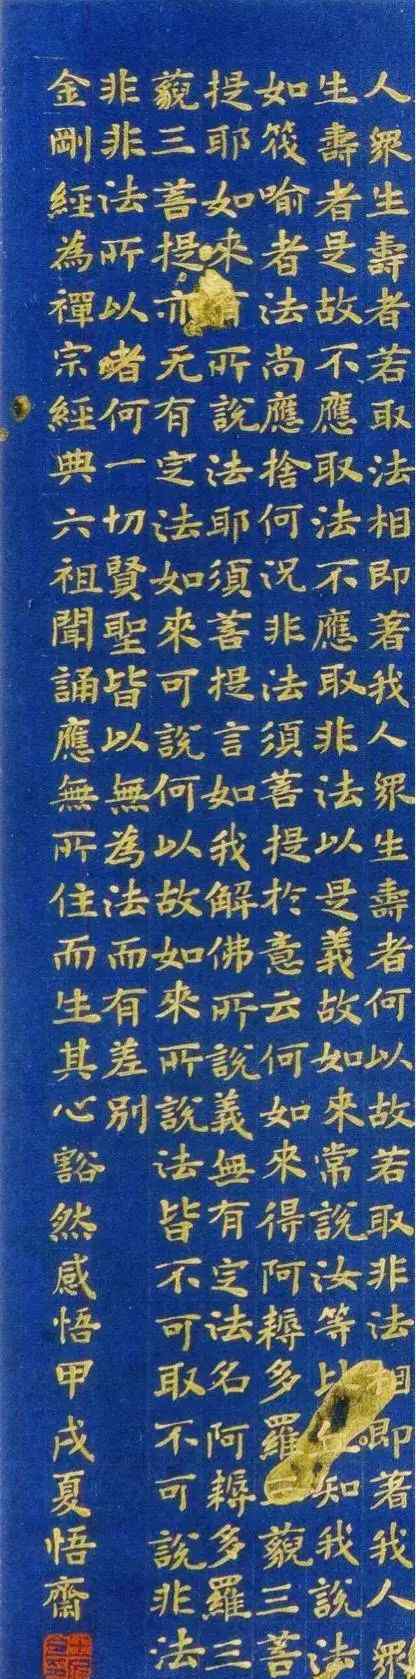 人眾生壽者若取法相即著我人眾生壽者何以故若取非法相即著我人眾
生壽者是故不應取法不應取非法以是義故如來常說汝等比知我說法
如筏喻者法尚應捨何況非法須菩提於意云何如來得阿耨多羅三藐三菩
提耶如來有所說法耶須菩提言如我解佛所說義無有定法名阿耨多羅三
藐三菩提亦无有定法如來可說何以故如來所說法皆不可取不可說非法
非非法所以者何一切賢聖皆以無為法而有差別
金剛經為禪宗經典六祖聞誦應無所住而生其心豁然感悟甲戌夏悟齋